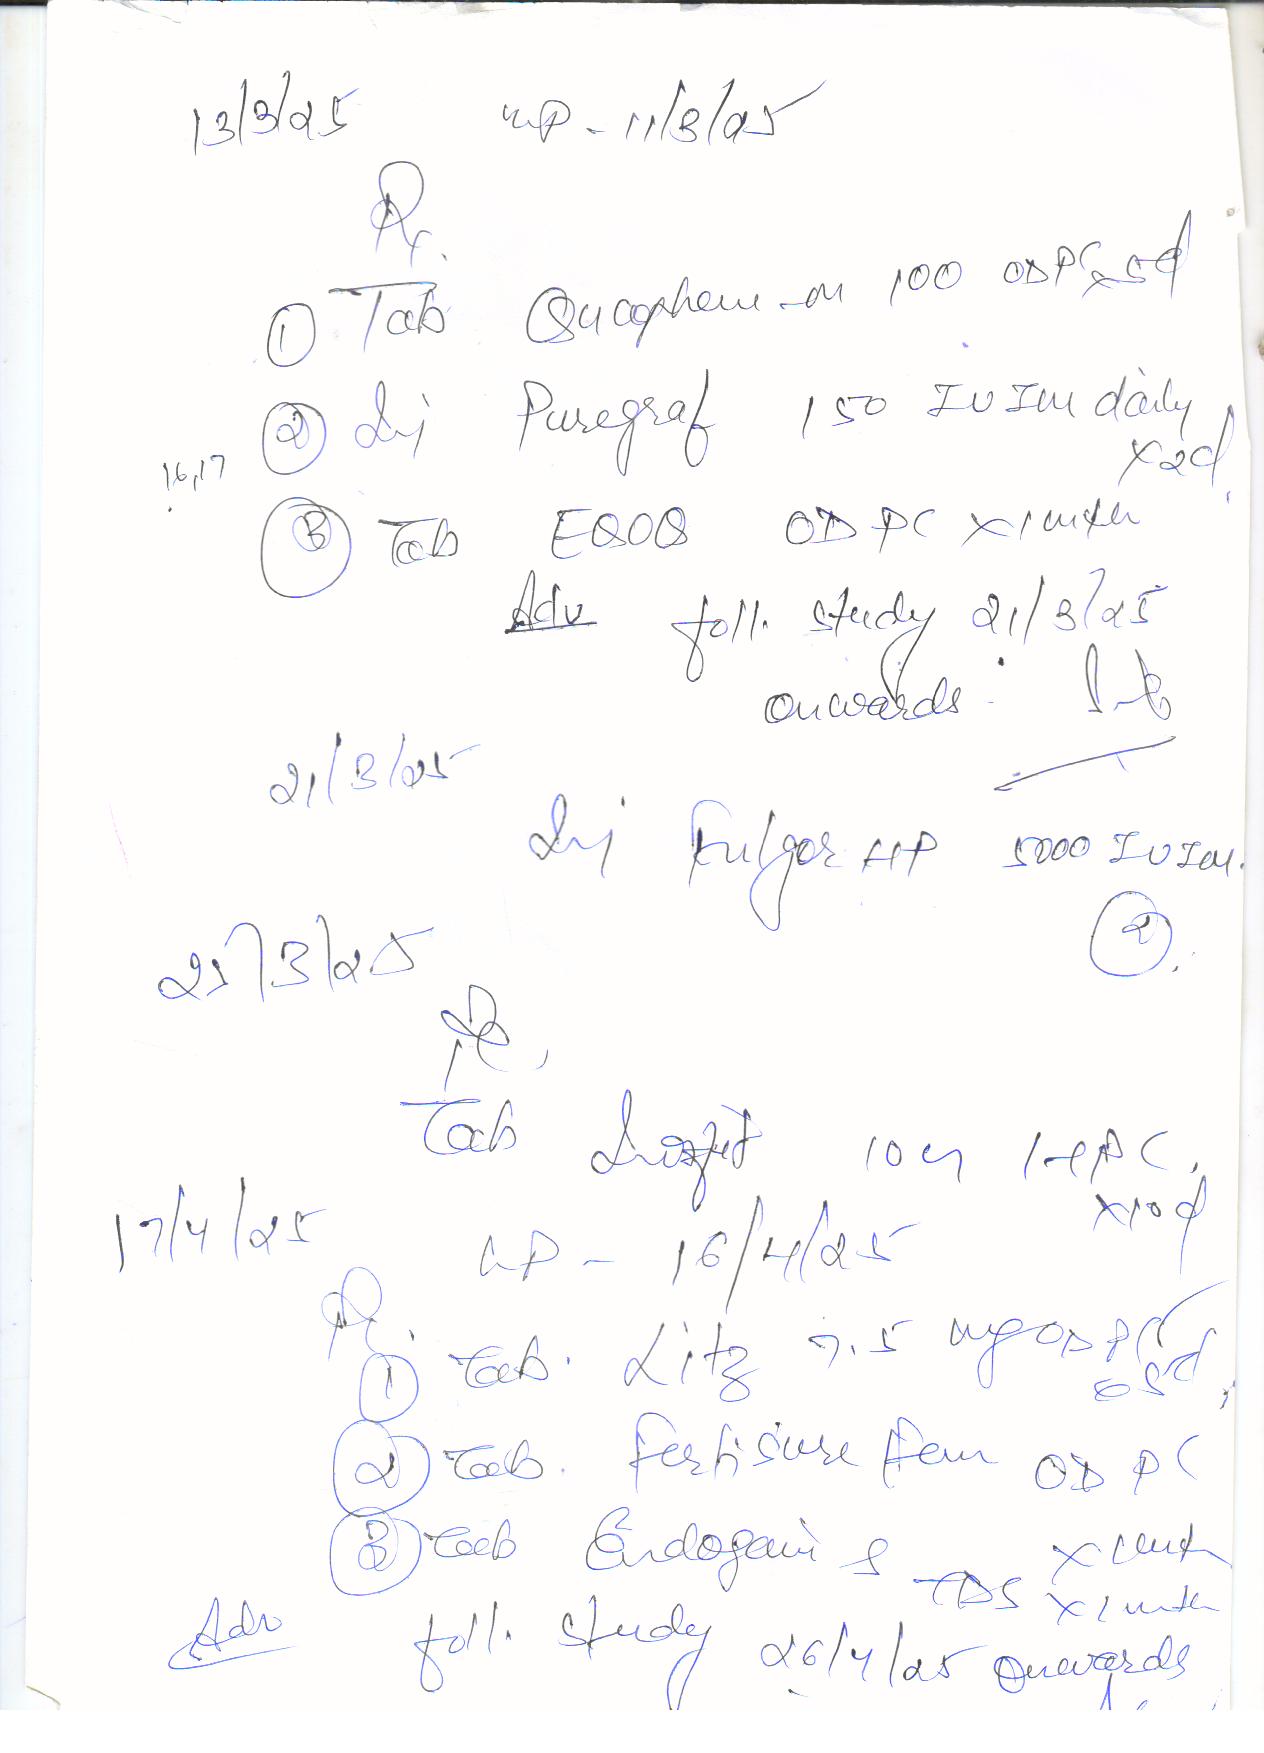 13/3/25 LMP - 11/3/25
Rx.
① Tab 100 OD PC x 5d
② Inj Puregraf 150 IU IM daily
x 2d
16,17
③ Tab EQOQ OD PC x 1 month
Adv foll. study 21/3/25
onwards
21/3/25
Inj Fulgor HP 5000 IU IM.
②.
25/3/25
Rx,
Tab 10 PC.
x 10d
17/4/25 LMP - 16/4/25
Rx.
① Tab. Litz 7.5 mg OD PC
x 5d,
② Tab. Fertisure fem OD PC
x 1 month
③ Tab Endogain TDS x 1 month
Adv foll. study 26/4/25 onwards